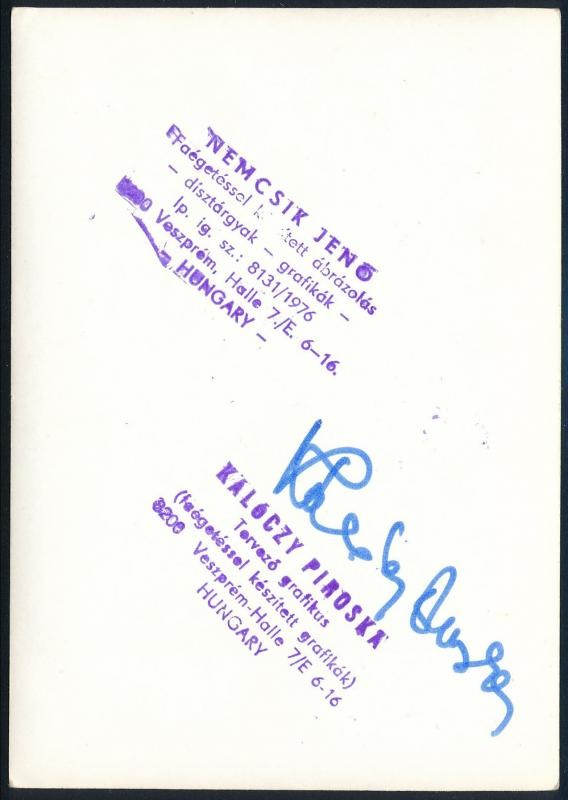 NEMCSIK JENŐ
Faégetéssel ített ábrázolás
– dísztárgyak – grafikák –
Ip. ig. sz.: 8131/1976
8200 Veszprém, Halle 7./E. 6–16.
– HUNGARY –
KÁLÓCZY PIROSKA
Tervező grafikus
(faégetéssel készített grafikák)
8200 Veszprém-Halle 7/E 6-16
HUNGARY